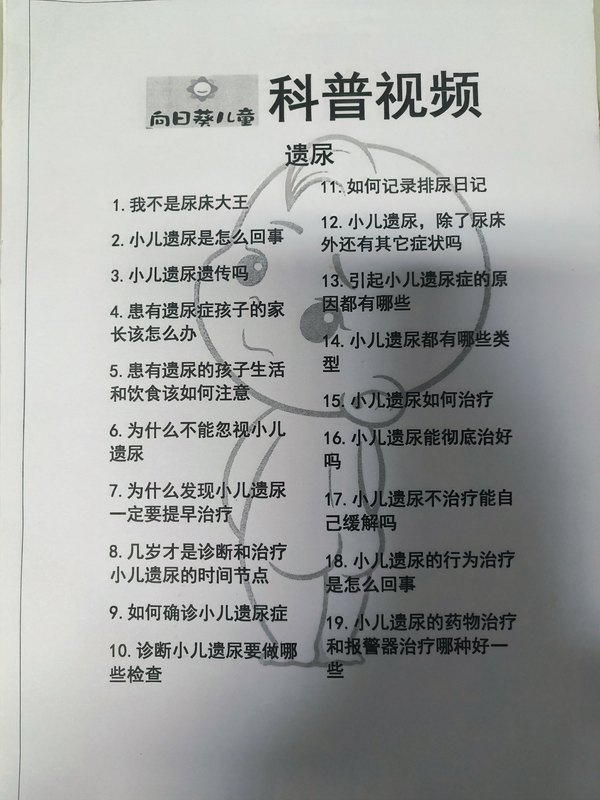 向日葵儿童
科普视频
遗尿
1.我不是尿床大王
2.小儿遗尿是怎么回事
3.小儿遗尿遗传吗
4.患有遗尿症孩子的家
长该怎么办
5.患有遗尿的孩子生活
和饮食该如何注意
6.为什么不能忽视小儿
遗尿
7.为什么发现小儿遗尿
一定要提早治疗
8.几岁才是诊断和治疗
小儿遗尿的时间节点
9.如何确诊小儿遗尿症
10.诊断小儿遗尿要做哪
些检查
11.如何记录排尿日记
12.小儿遗尿，除了尿床
外还有其它症状吗
13.引起小儿遗尿症的原
因都有哪些
14.小儿遗尿都有哪些类
型
15.小儿遗尿如何治疗
16.小儿遗尿能彻底治好
吗
17.小儿遗尿不治疗能自
己缓解吗
18.小儿遗尿的行为治疗
是怎么回事
19.小儿遗尿的药物治疗
和报警器治疗哪种好一
些